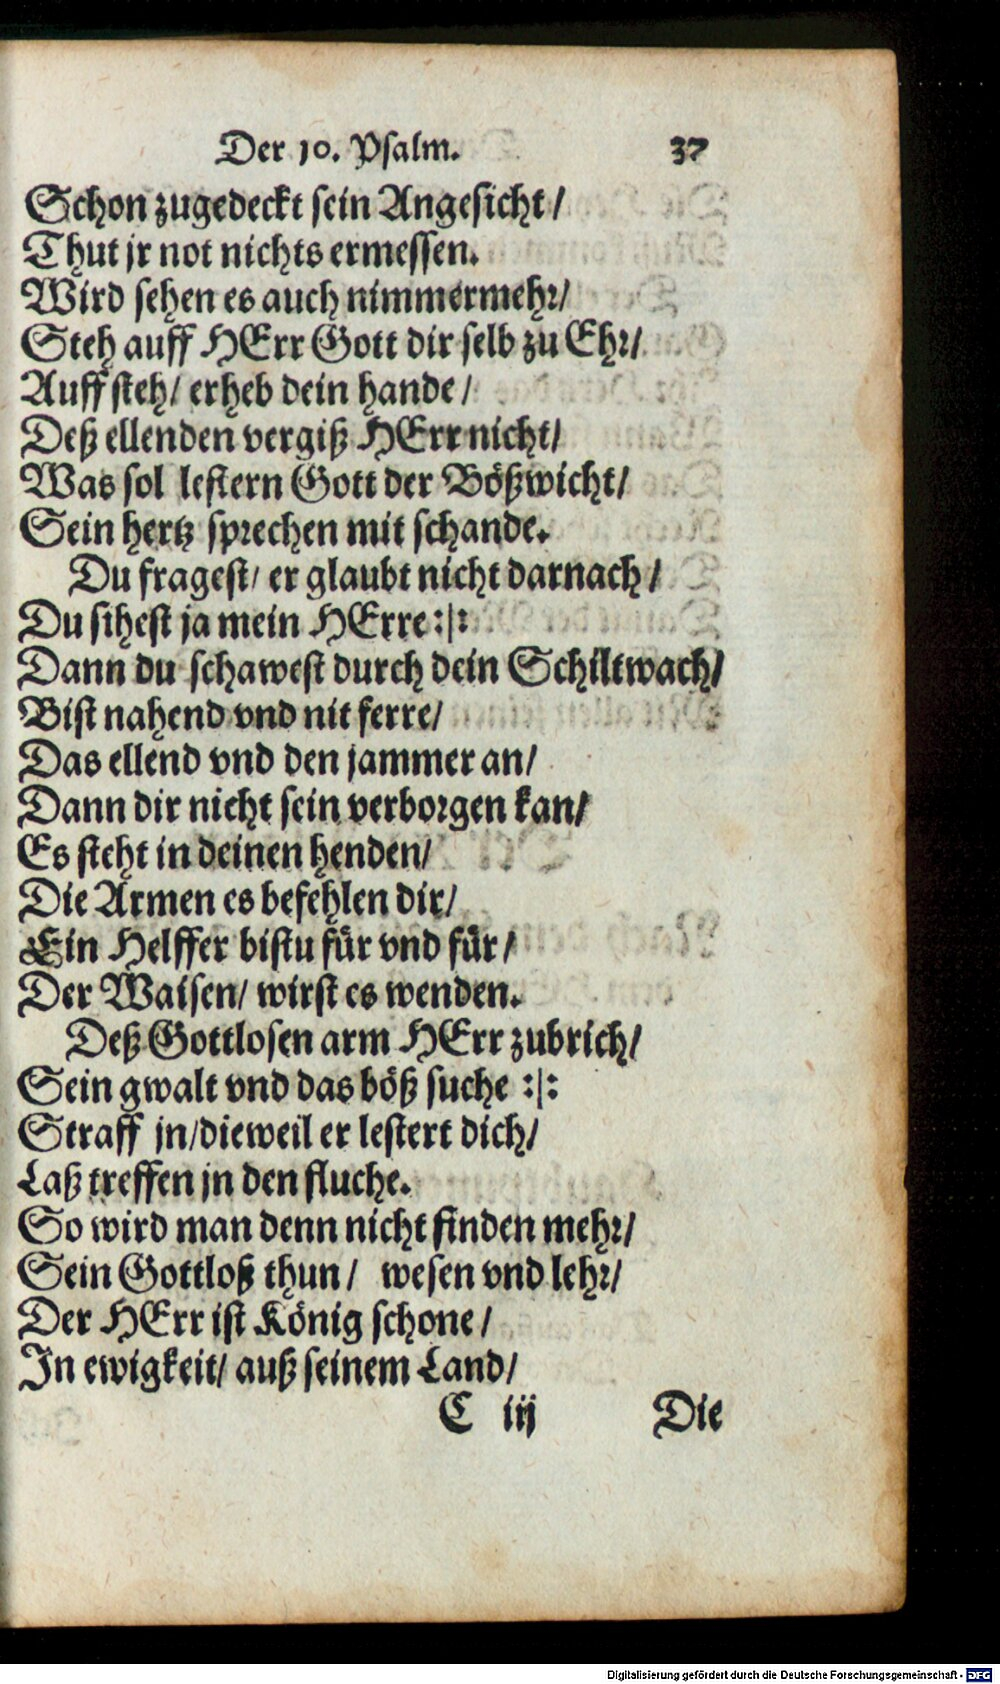 Der 10. Psalm. 37
Schon zugedeckt sein Angesicht /
Thut jr not nichts ermessen.
Wird sehen es auch nimmermehr /
Steh auff HErr Gott dir selb zu Ehr /
Auff steh / erheb dein hande /
Deß ellenden vergiß HErr nicht /
Was sol lestern Gott der Bößwicht /
Sein hertz sprechen mit schande.
Du fragest / er glaubt nicht darnach /
Du sihest ja mein HErre :|:
Dann du schawest durch dein Schiltwach /
Bist nahend vnd nit ferre /
Das ellend vnd den jammer an /
Dann dir nicht sein verborgen kan /
Es steht in deinen henden /
Die Armen es befehlen dir /
Ein Helffer bistu für vnd für /
Der Waisen / wirst es wenden.
Deß Gottlosen arm HErr zubrich /
Sein gwalt vnd das böß suche :|:
Straff jn / dieweil er lestert dich /
Laß treffen jn den fluche.
So wird man denn nicht finden mehr /
Sein Gottloß thun / wesen vnd lehr /
Der HErr ist König schone /
In ewigkeit / auß seinem Land /
C iij Die
Digitalisierung gefördert durch die Deutsche Forschungsgemeinschaft - DFG